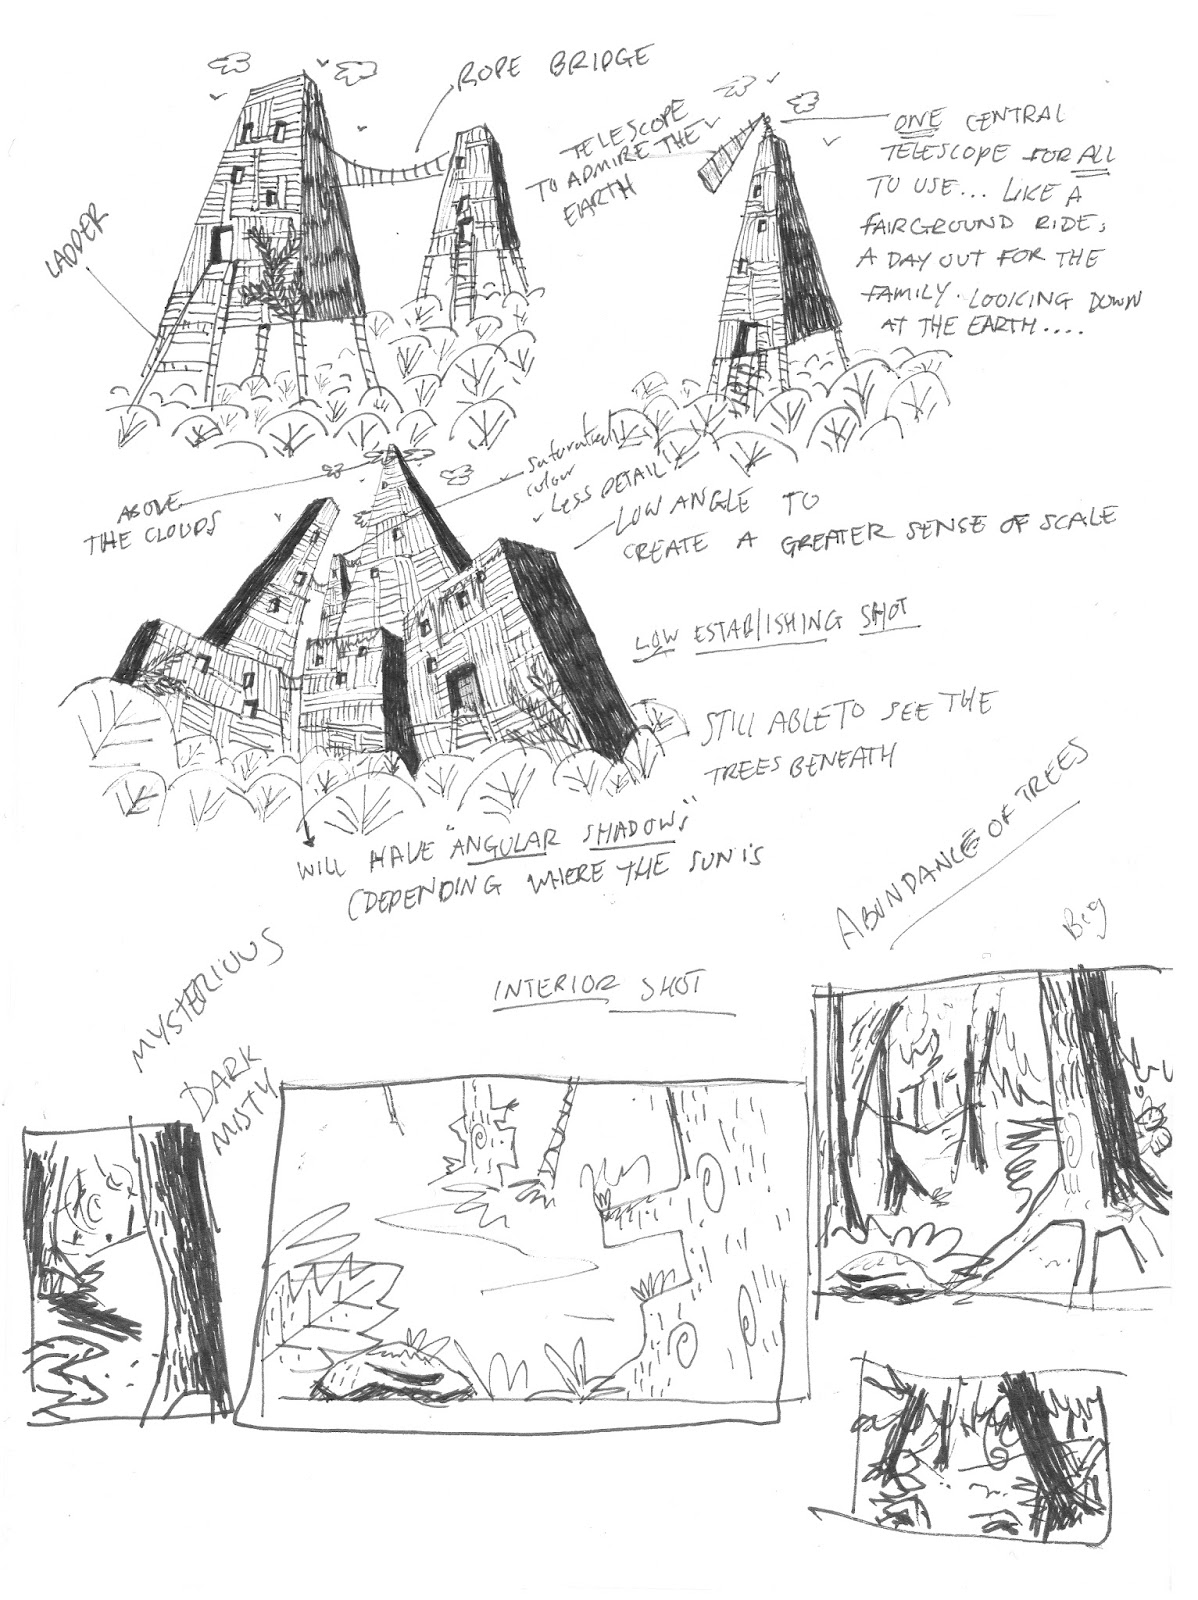 ROPE BRIDGE
LADDER
TELESCOPE
TO ADMIRE THE
EARTH
ONE CENTRAL
TELESCOPE FOR ALL
TO USE... LIKE A
FAIRGROUND RIDE,
A DAY OUT FOR THE
FAMILY. LOOKING DOWN
AT THE EARTH....
ABOVE
THE CLOUDS
saturated
colour
LESS DETAIL
LOW ANGLE TO
CREATE A GREATER SENSE OF SCALE
LOW ESTABLISHING SHOT
STILL ABLE TO SEE THE
TREES BENEATH
WILL HAVE "ANGULAR SHADOWS"
(DEPENDING WHERE THE SUN IS
MYSTERIOUS
DARK
MISTY
INTERIOR SHOT
ABUNDANCE OF TREES
Big